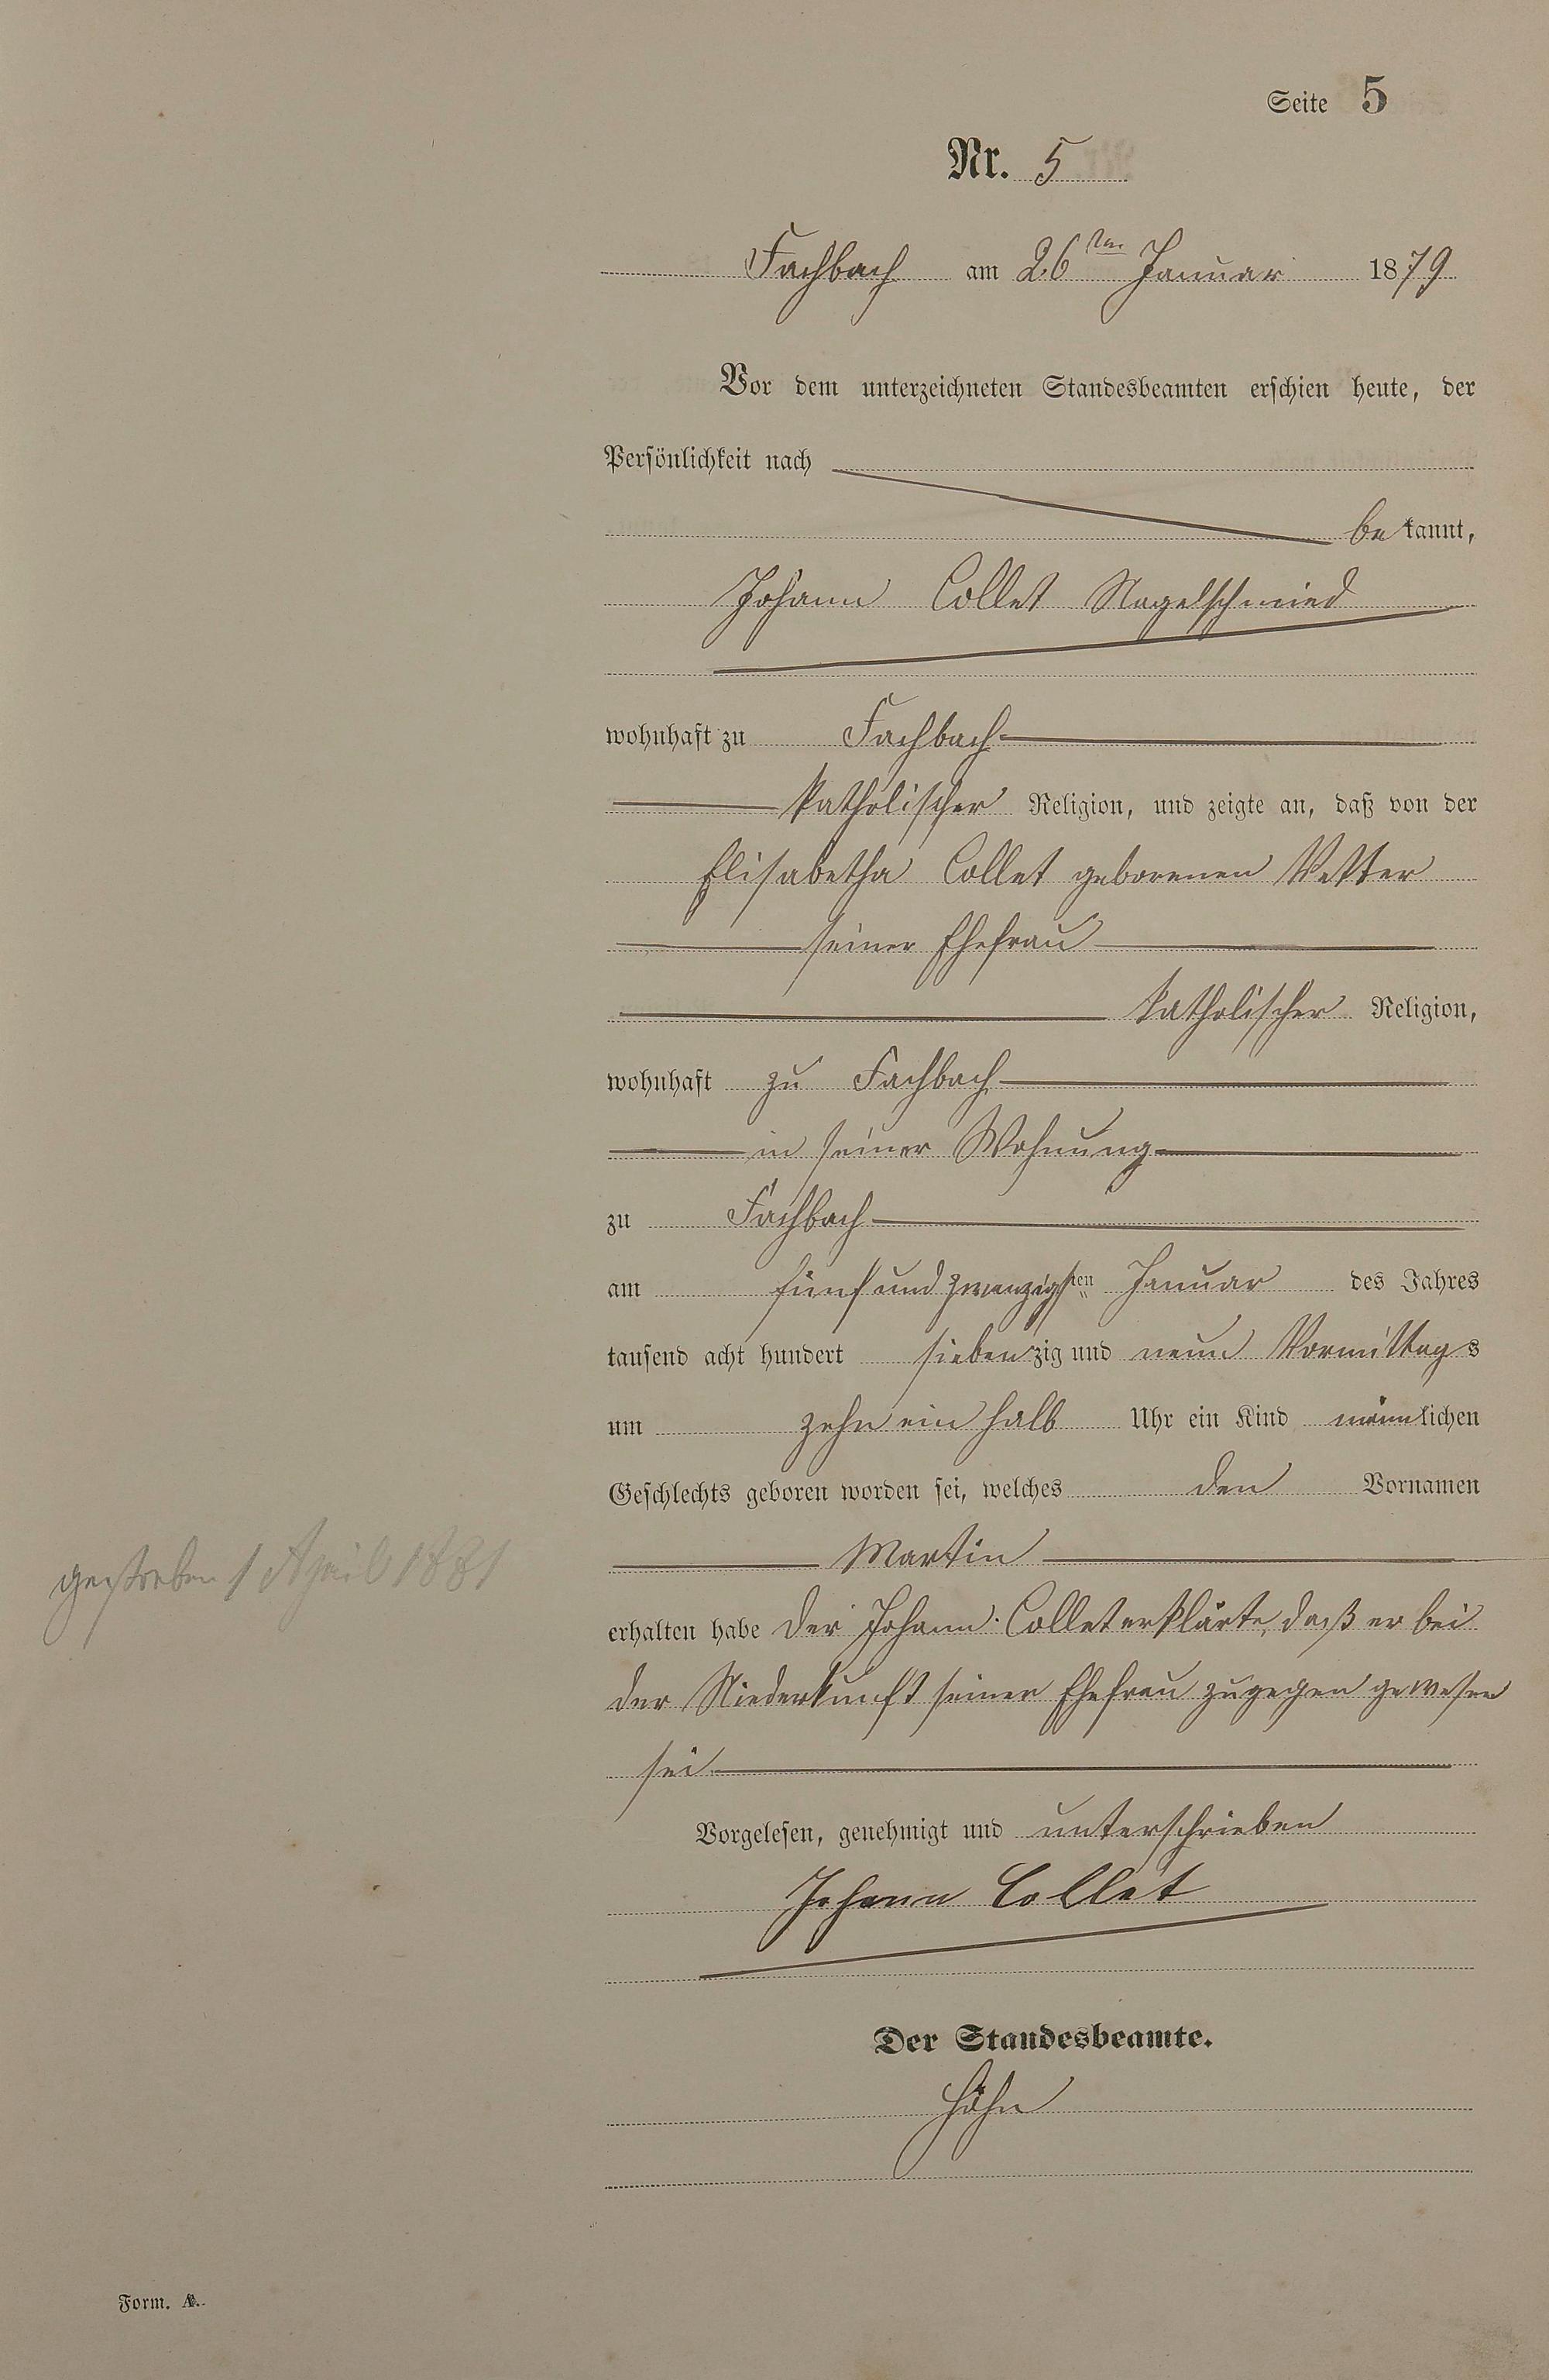 Seite 5
Nr. 5
Fachbach am 26ten Januar 1879
Vor dem unterzeichneten Standesbeamten erschien heute, der
Persönlichkeit nach
bekannt,
Johann Collet Nagelschmied
wohnhaft zu Fachbach
katholischer Religion, und zeigte an, daß von der
Elisabetha Collet geborenen Vetter
seiner Ehefrau
katholischer Religion,
wohnhaft zu Fachbach
in seiner Wohnung
zu Fachbach
am fünf und zwanzigsten Januar des Jahres
tausend acht hundert siebenzig und neun Vormittags
um zehn ein halb Uhr ein Kind männlichen
Geschlechts geboren worden sei, welches den Vornamen
Martin
gestorben 1 April 1881
erhalten habe Der Johann Collet erklärte, daß er bei
der Niederkunft seiner Ehefrau zugegen gewesen
sei
Vorgelesen, genehmigt und unterschrieben
Johann Collet
Der Standesbeamte.
Höhn
Form. A.